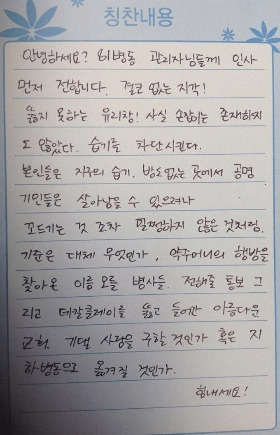 칭찬내용
안녕하세요? 뇌병동 관리자님들께 인사
먼저 전합니다. 결코 없는 지각!
뚫지 못하는 유리창! 사실 손잡이는 존재하지
도 않았다. 습기를 차단시킨다.
본인들은 지구의 습기. 밤도 없는 곳에서 공명
기인들은 살아남을 수 있으려나
꼬드기는 것 조차 말짱하지 않은 것처럼,
기준은 대체 무엇인가, 약주머니의 행방을
찾아온 이름 모를 병사들. 전해줄 통보 그
리고 데칼클레이를 뚫고 들어간 아름다운
교회, 기댈 사람을 구할 것인가 혹은 지
하병동으로 옮겨질 것인가.
힘내세요!